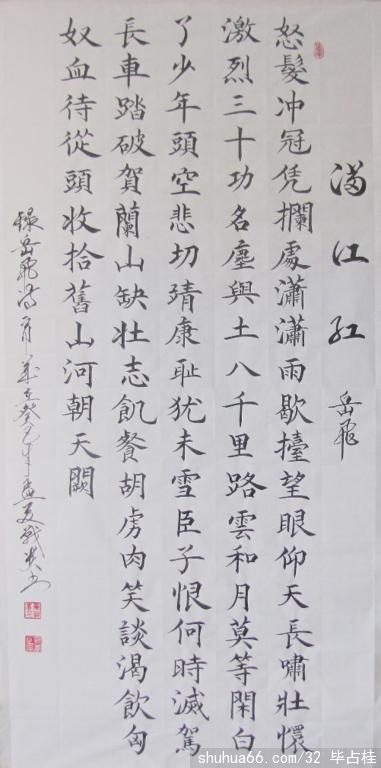 满江红 岳飛
怒髮冲冠凭攔處瀟瀟雨歇擡望眼仰天長嘯壯懷
激烈三十功名塵與土八千里路雲和月莫等閑白
了少年頭空悲切靖康耻犹未雪臣子恨何時滅駕
長車踏破賀蘭山缺壮志飢餐胡虏肉笑談渴飲匈
奴血待從頭收拾舊山河朝天闕
録岳飛詩一首歲在癸巳年孟夏
shuhua66.com/32 毕占桂